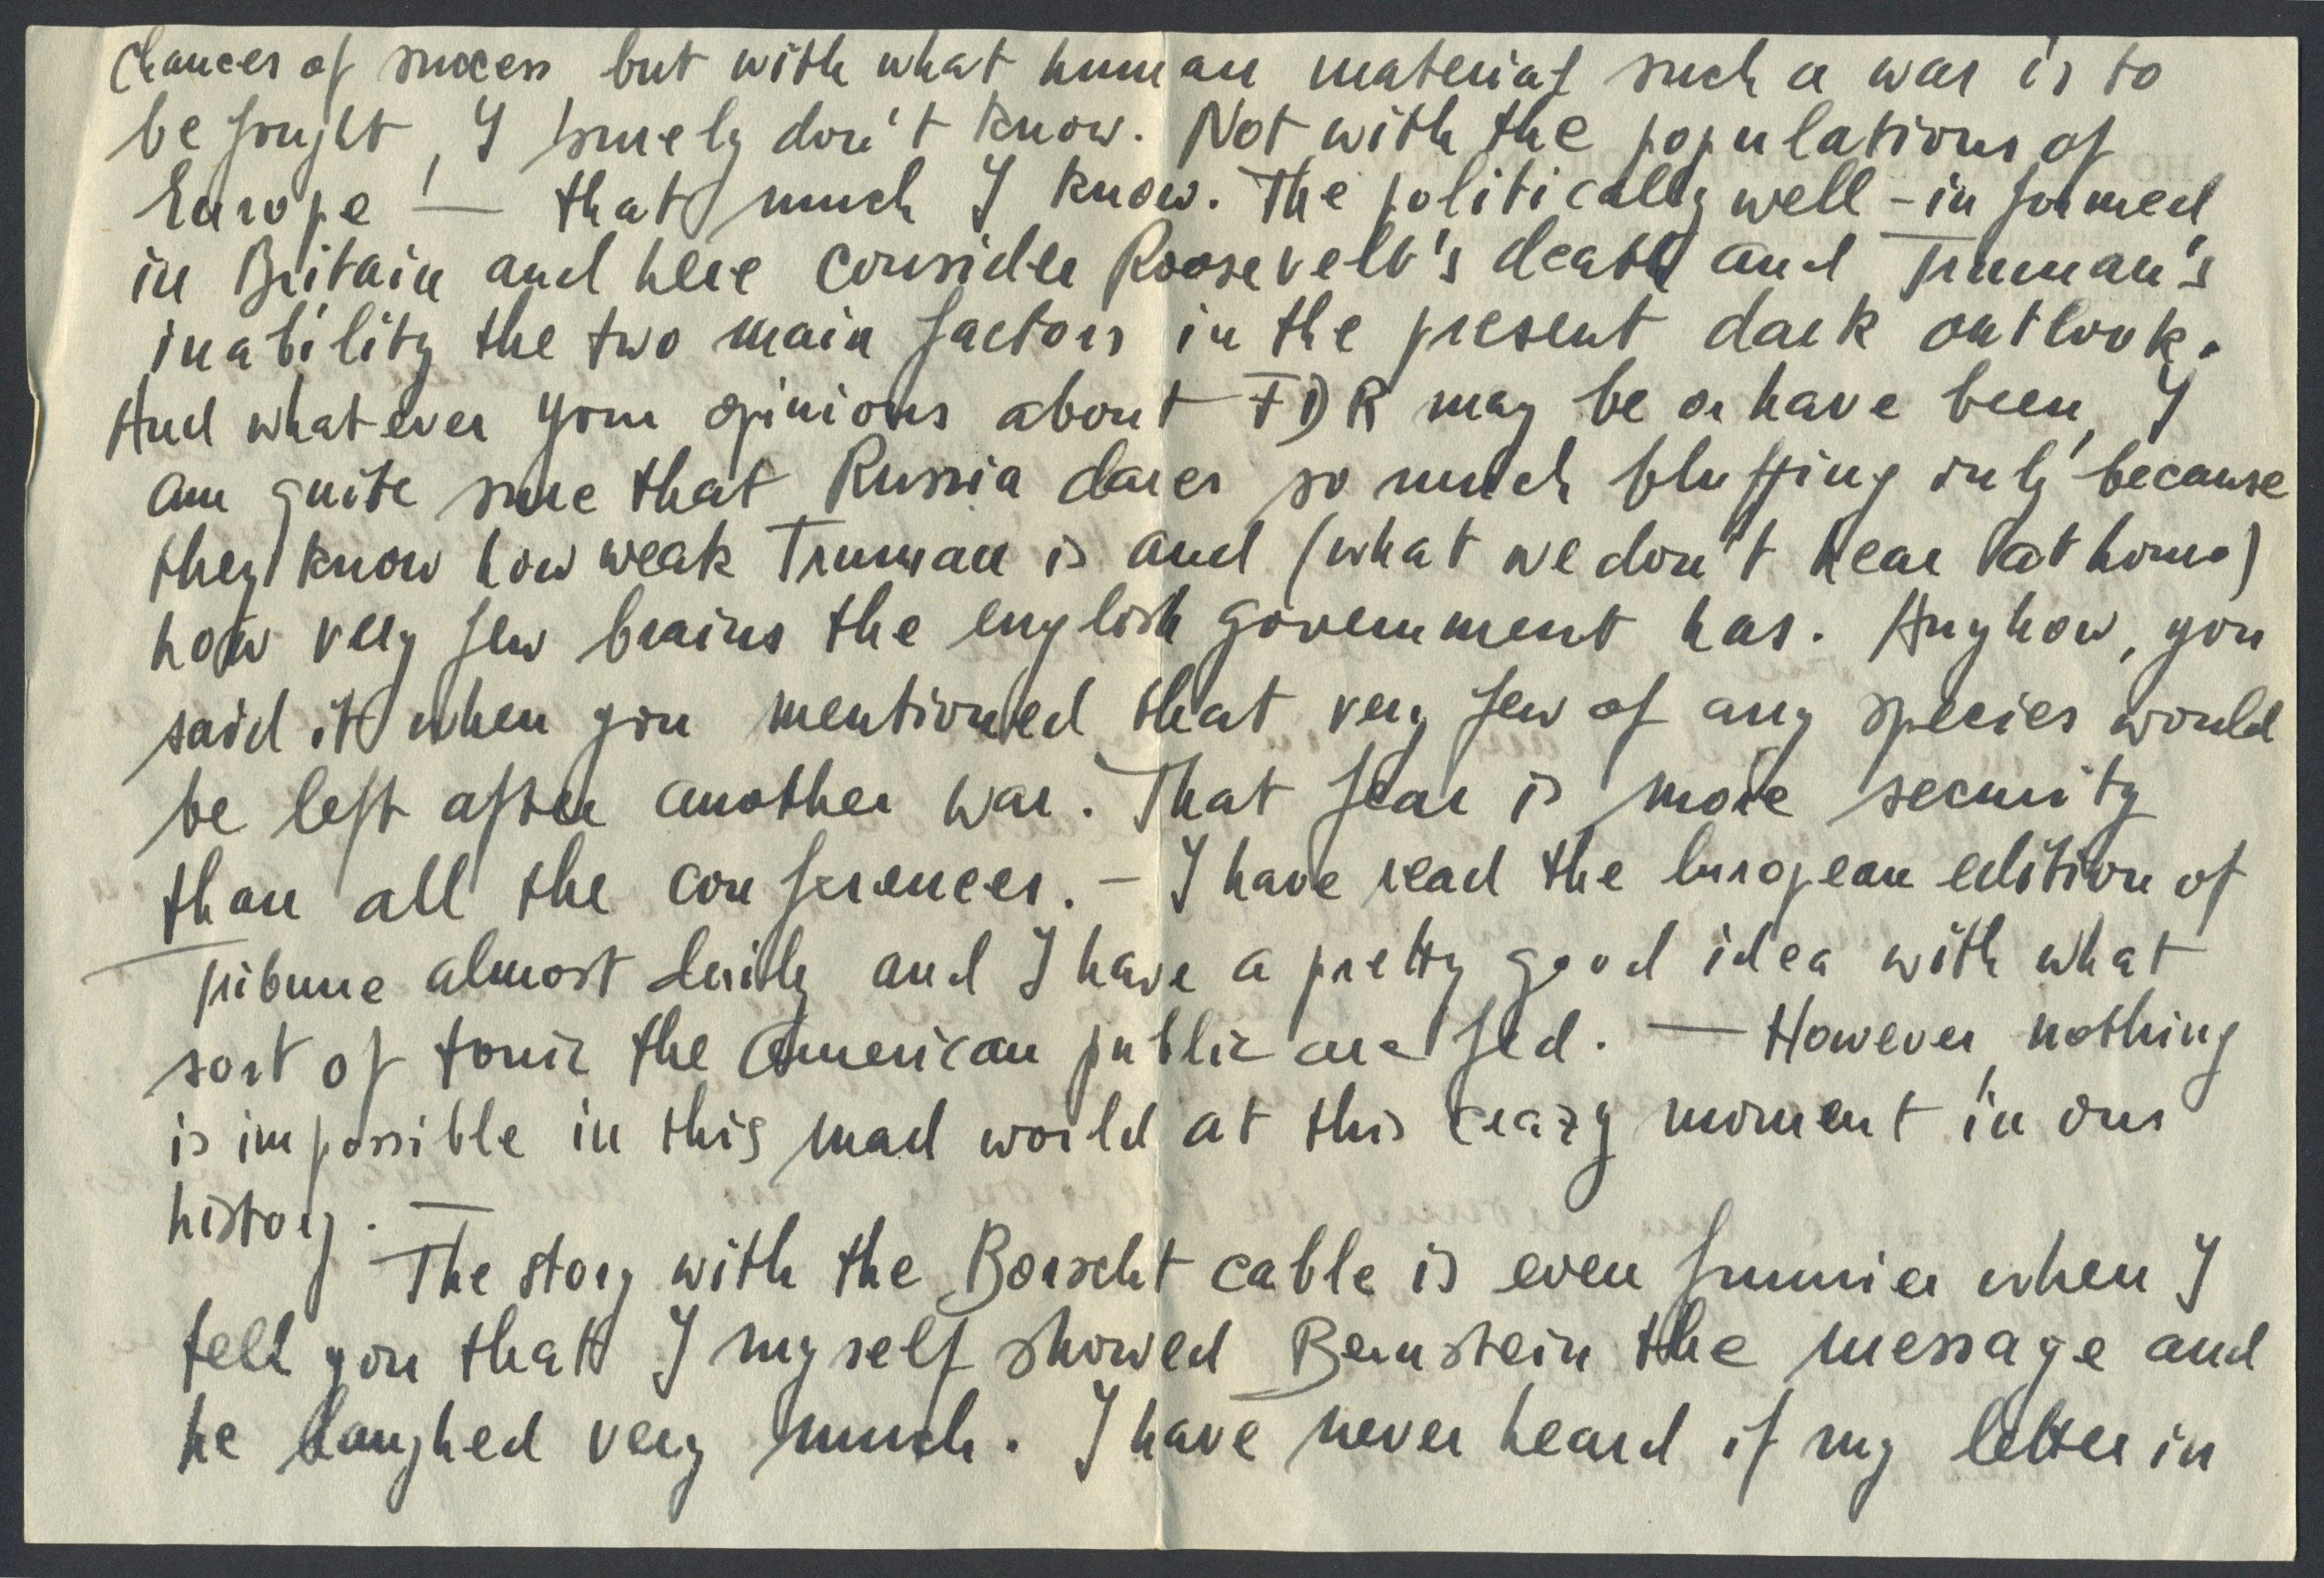 chances of success but with what human material such a war is to
be fought, I surely don't know. Not with the populations of
Europe! — that much I know. The politically well-informed
in Britain and here consider Roosevelt's death and Truman's
inability the two main factors in the present dark outlook.
And whatever your opinions about FDR may be or have been, I
am quite sure that Russia dares so much bluffing only because
they know how weak Truman is and (what we don't hear at home)
how very few brains the english government has. Anyhow, you
said it when you mentioned that very few of any species would
be left after another war. That fear is more security
than all the conferences. — I have read the european edition of
Tribune almost daily and I have a pretty good idea with what
sort of tonic the American public are fed. — However, nothing
is impossible in this mad world at this crazy moment in our
history. —
The story with the Borscht cable is even funnier when I
tell you that I myself showed Bernstein the message and
he laughed very much. I have never heard if my letter in